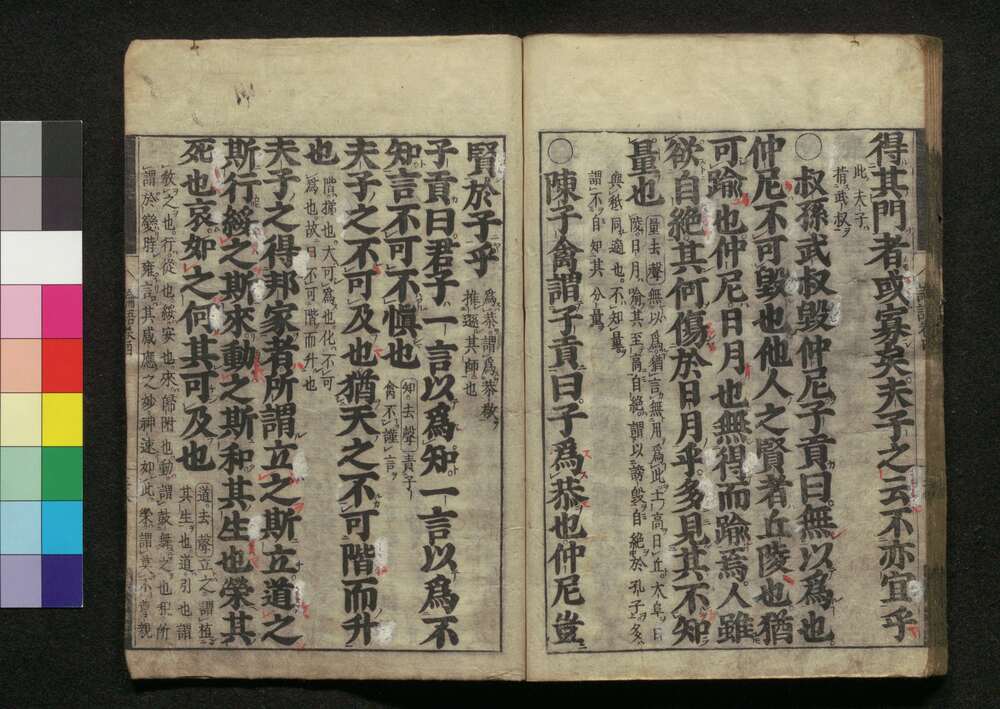 得其門者或寡矣夫子之云不亦宜乎
此夫子
指武叔
○叔孫武叔毀仲尼子貢曰無以爲也
仲尼不可毀也他人之賢者丘陵也猶
可踰也仲尼日月也無得而踰焉人雖
欲自絶其何傷於日月乎多見其不知
量也
量去聲無以爲猶言無用爲此土高曰丘大阜曰
陵日月踰其至高自絶謂以謗毀自絶於孔子多
與祇同適也不知量
謂不自知其分量
○陳子禽謂子貢曰子爲恭也仲尼豈
賢於子乎
爲恭謂爲恭敬
推遜其師也
子貢曰君子一言以爲知一言以爲不
知言不可不愼也
知去聲責子
禽不謹言
夫子之不可及也猶天之不可階而升
也
階梯也大可爲也化不可
爲也故曰不可階而升也
夫子之得邦家者所謂立之斯立道之
斯行綏之斯來動之斯和其生也榮其
死也哀如之何其可及也
道去聲立之謂植
其生也道引也謂
教之也行從也綏安也來歸附也動謂鼓舞之也和所
謂於變時雍言其感應之妙神速如此榮謂莫不尊親